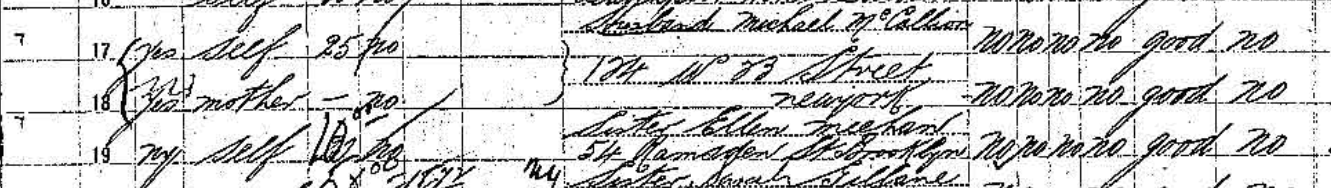 husband Michael McCallion
7 17 yes self 25 no no no no no good no
124 W 23 Street
18 yes mother - no newyork - no no no no good no
7 Sister Ellen Meehan
19 ny self no 54 Ramsden St Brooklyn no no no no good no
ny Sister Sarah Gillane